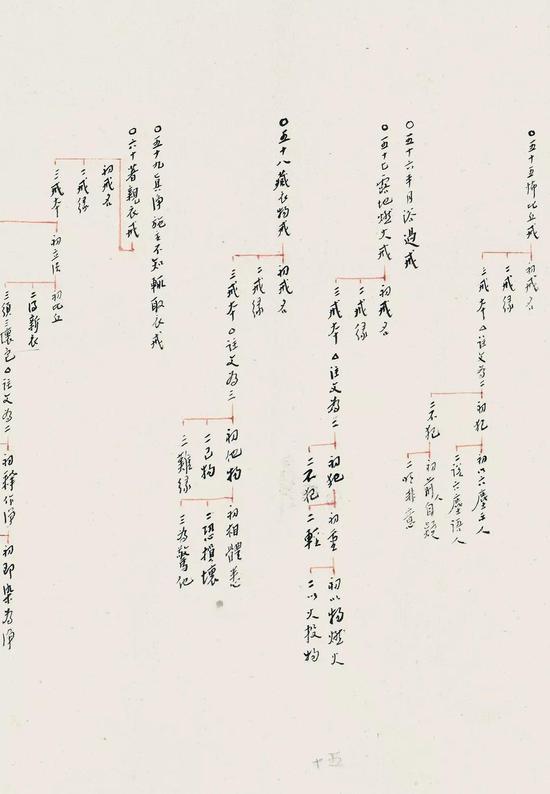 〇五十五怖比丘戒
初戒名
二戒緣
三戒本△注文為二
初犯
初以六塵示人
二說六塵語人
二不犯
初前人自疑
二作非意
〇五十六半月浴過戒
〇五十七露地燃火戒
初戒名
二戒緣
三戒本△注文為二
初犯
初重
初以物燃火
二以火投物
二輕
二不犯
〇五十八藏衣物戒
初戒名
二戒緣
三戒本〇注文為三
初他物
初相體悉
二恐損壞
三為驚他
二己物
三難緣
〇五十九真淨施主不知輒取衣戒
〇六十著親衣戒
初戒名
二戒緣
三戒本
初立法
初比丘
二得新衣
三須三壞色△注文為二
初釋作淨
初即染為淨
五十